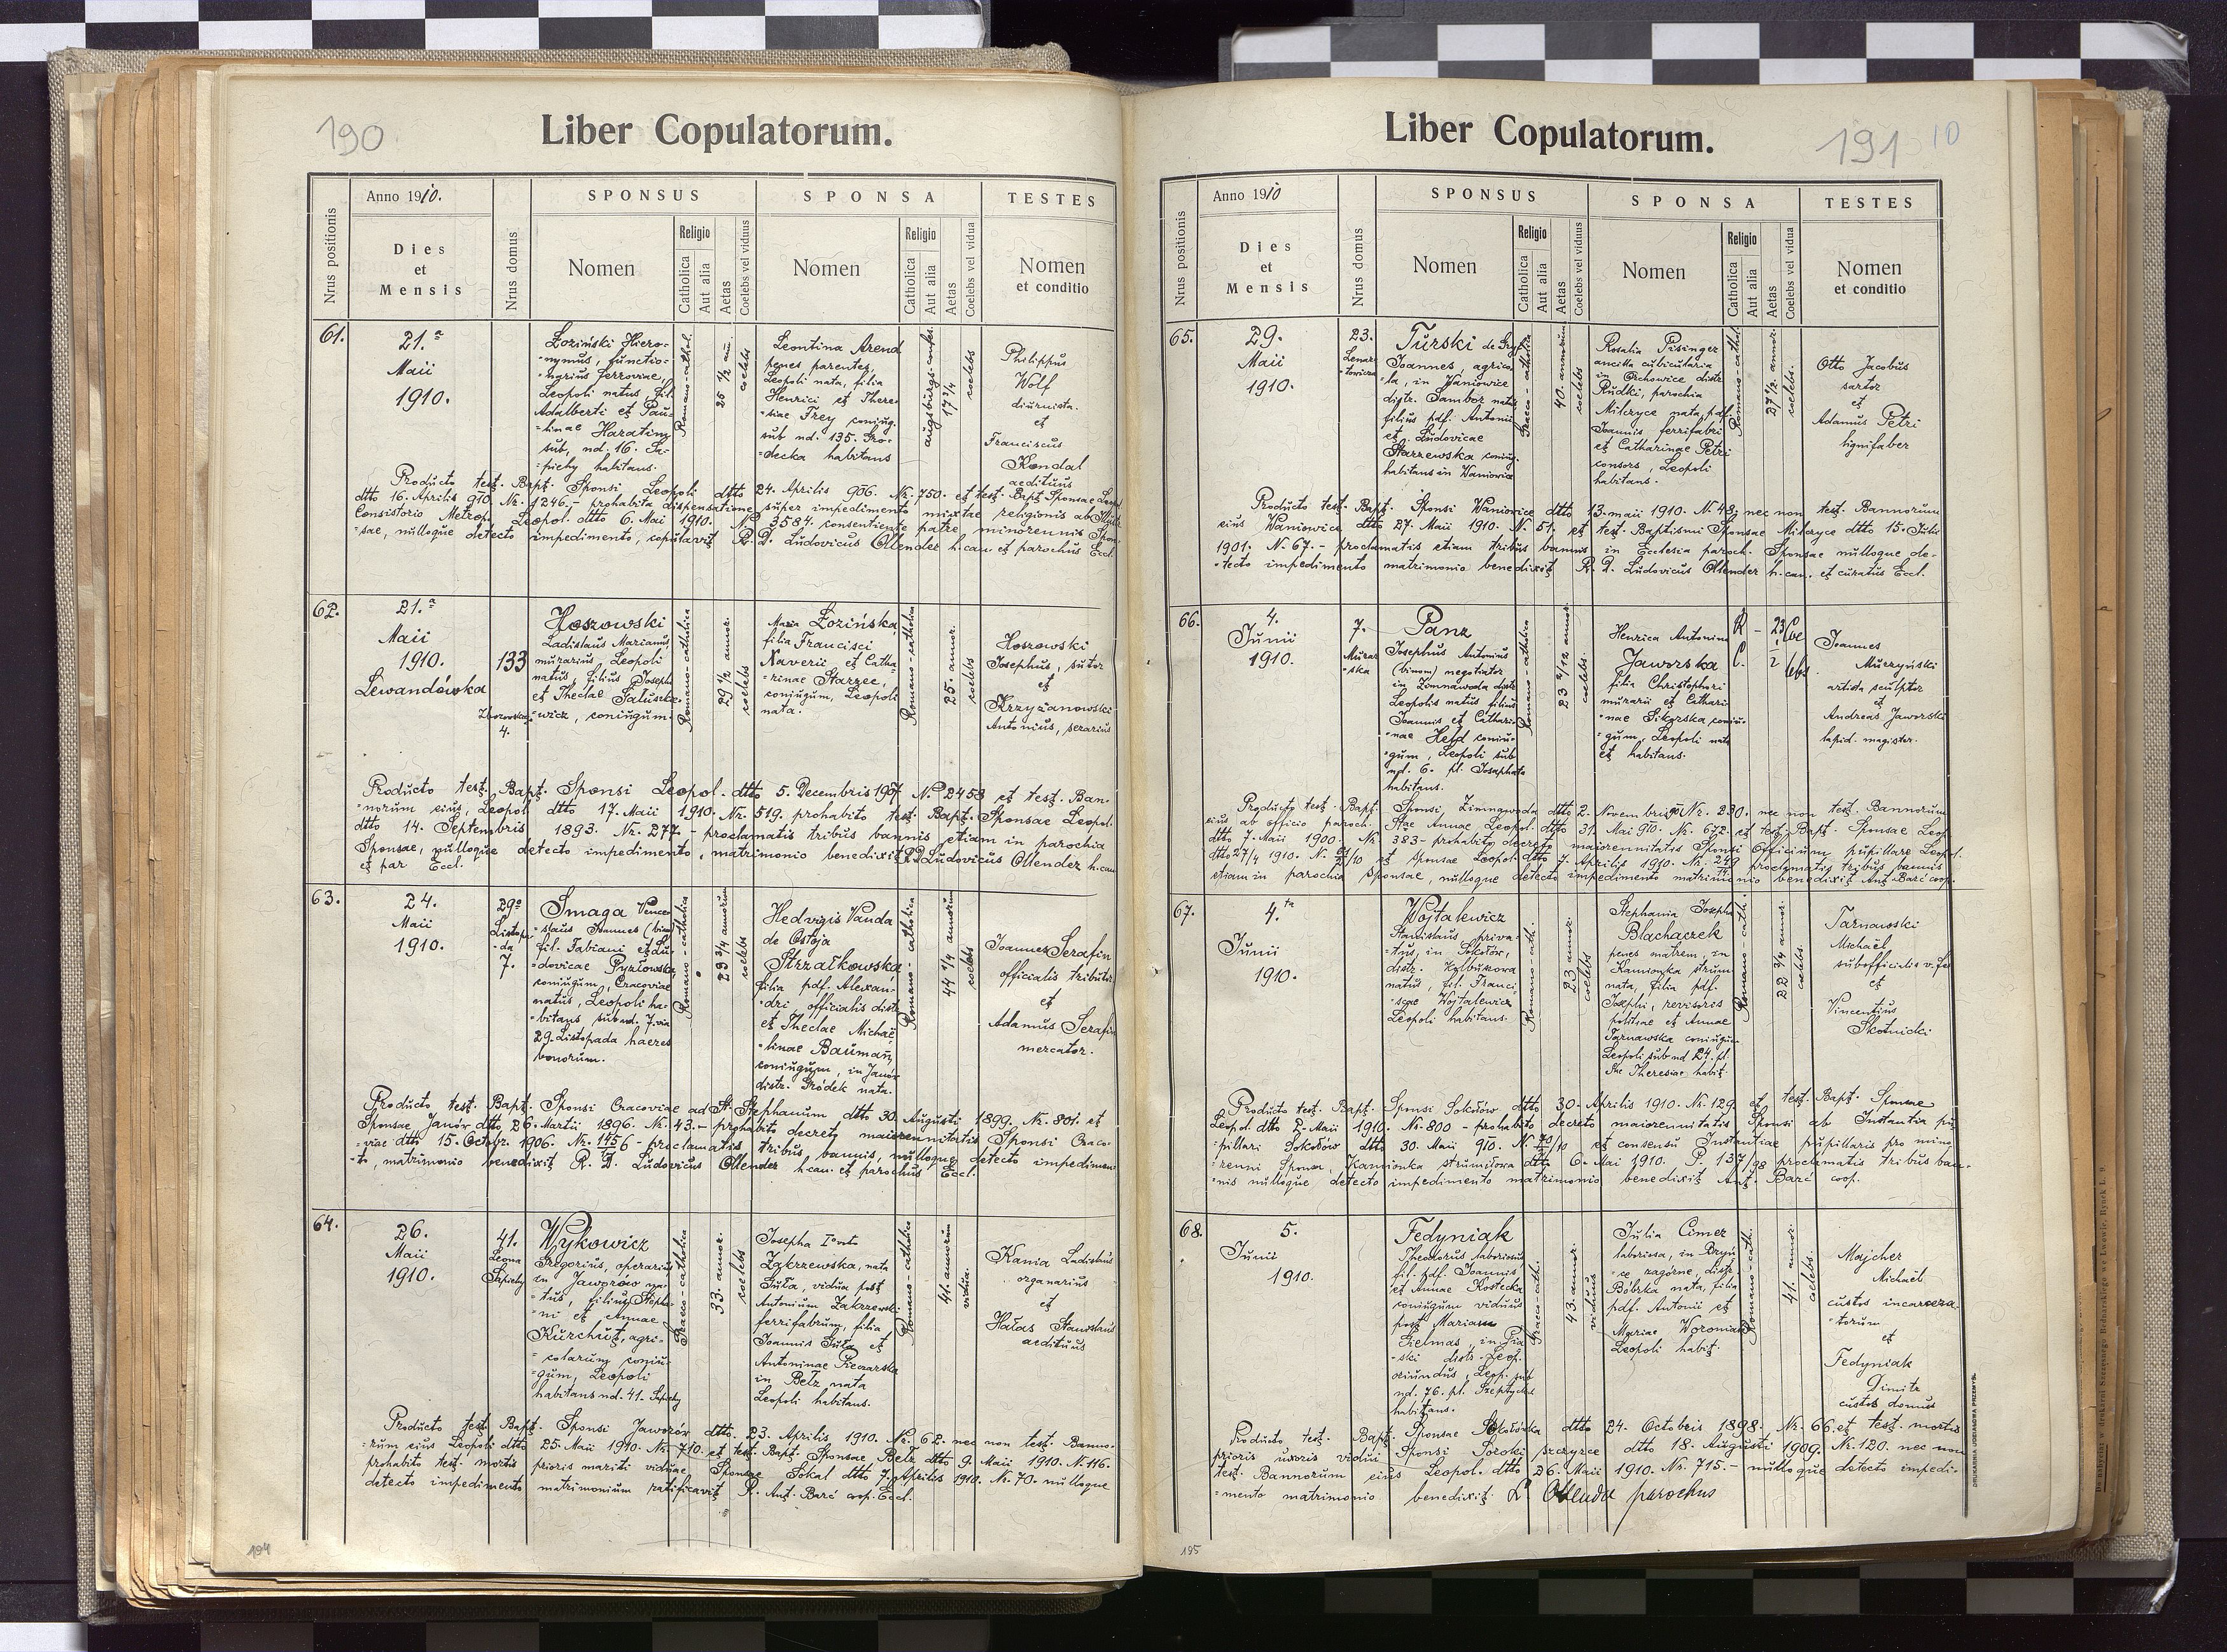 190
Liber Copulatorum.
Nrus positionis
Anno 1910.
Dies
et
Mensis
Nrus domus
SPONSUS
Nomen
Religio
Catholica
Aut alia
Aetas
Coelebs vel viduus
SPONSA
Nomen
Religio
Catholica
Aut alia
Aetas
Coelebs vel vidua
TESTES
Nomen
et conditio
61.
21.a
Maii
1910.
Łoziński Hiero-
=nymus, functio=
=narius ferroviae,
Leopoli natus, fil.
Adalberti et Pau=
=linae Haratim
sub, nd. 16. Sa-
=piehy habitans.
Romano-cathol.
25 1/2 an.
coelebs
Leontina Arend
penes parentes,
Leopoli nata, filia
Henrici et There=
=siae Frey coniug.
sub nd. 135. Gro=
=decka habitans
augsburg. confes.
17 3/4
coelebs
Philippus
Wolf
diurnista.
et
Franciscus
Kondal
aedituus
Producto test. Bapt. Sponsi Leopoli dtto 24. Aprilis 906. Nr. 750. et test. Bapt. Sponsae Leopol
dtto 16. Aprilis 910. Nr. 1246.- prohabita dispensatione super impedimento mixtae religionis ab
Consistorio Metrop. Leopol. dtto 6. Mai 1910. Nr. 3584. consentiente patre minorennis Spon=
=sae, nulloque detecto impedimento, copulavit R. D. Ludovicus Ollender h. can. et parochus Eccl.
62.
21.a
Maii
1910.
Lewandówka
133
Zborowska
4.
Hoszowski
Ladislaus Marianus,
murarius Leopoli
natus, filius Josephi
et Theclae Fałuszke=
=wicz, coniugum.
Romano-catholica
29 1/2 annor.
coelebs
Maria Łozińska,
filia Francisci
Xaverii et Catha=
=rinae Starzec,
coniugum, Leopoli
nata.
Romano-catholica
25. annor.
coelebs
Hoszowski
Josephus, sutor
et
Krzyżanowski
Antonius, serarius
Producto test. Bapt. Sponsi Leopol. dtto 5. Decembris 1907 Nr. 2458 et test. Ban=
=norum eius, Leopol dtto 17. Maii 1910. Nr. 519. prohabito test. Bapt. Sponsae Leopol.
dtto 14. Septembris 1893. Nr. 277.- proclamatis tribus bannis etiam in parochia
Sponsae, nulloque detecto impedimento, matrimonio benedixit R. D. Ludovicus Ollender h. can
et par Eccl.
63.
24.
Maii
1910.
29o
Listopa
da
7.
Smaga Vence=
=slaus Joannes (binom)
fil. Fabiani et Lu=
=dovicae Pyzłowska,
coniugum, Cracoviae
natus, Leopoli ha=
=bitans sub nd. 7. via
29. Listopada haeres
bonorum.
Romano-catholica
29 3/4 annorum
coelebs
Hedvigis Vanda
de Ostoja
Strzałkowska,
filia pdf. Alexan=
=dri, officialis distr.
et Theclae Michae=
=linae Bauman,
coniugum, in Janów
distr. Gródek nata.
Romano-catholica
44 1/4 annorum
coelebs
Joannes Serafin
officialis tributor
et
Adamus Serafin
mercator.
Producto test. Bapt. Sponsi Cracoviae ad St. Stephanum dtto 30. Augusti 1899. Nr. 801. et
Sponsae Janów dtto 26. Martii 1896. Nr. 43.- prohabito decreto maiorennitatis Sponsi Craco=
=viae dtto 15. Octobr. 1906. Nr. - proclamatis tribus, bannis, nulloque detecto impedimen=
=to, matrimonio benedixit R. D. Ludovicus Ollender h. can. et parochus Eccl.
64.
26.
Maii
1910.
41.
Leona
Sapiehy
Wykowicz
Gregorius, operarius
in Jaworów na=
=tus, filius Stepha=
=ni et Annae
Kurchut, agri=
=colarum coniu=
=gum, Leopoli
habitans nd. 41. Sapiehy
Graeco-catholica
33. annor.
coelebs
Josepha I° voto
Zakrzewska, nata
Guła, vidua post
Antonium Zakrzewski
ferrifabrum, filia
Joannis Guła et
Antoninae Pieczarska
in Bełz nata
Leopoli habitans.
Romano-catholica
41. annorum
vidua.
Kania Ladislaus
organarius
et
Hałas Stanislaus
aedituus
Producto test. Bapt. Sponsi Jaworów dtto. 23. Aprilis 1910. Nr. 62. nec non test. Banno=
=rum eius Leopoli dtto 25. Maii 1910. Nr. 710. et test. Bapt. Sponsae Bełz dtto 9. Maii 1910. N. 116.
prohabito test. mortis prioris mariti viduae Sponsae Sokal dtto 7. Aprilis 1910. Nr. 70. nulloque
detecto impedimento matrimonium ratificavit R. Ant. Barć coop. Eccl.
194
191 10
Liber Copulatorum.
Nrus positionis
Anno 1910
Dies
et
Mensis
Nrus domus
SPONSUS
Nomen
Religio
Catholica
Aut alia
Aetas
Coelebs vel viduus
SPONSA
Nomen
Religio
Catholica
Aut alia
Aetas
Coelebs vel vidua
TESTES
Nomen
et conditio
65.
29.
Maii
1910.
23.
Turski de Gryf
Joannes agrico=
=la, in Waniowice
distr. Sambor natus
filius pdf. Antonii
et Ludovicae
Starzewska coniug.
habitans in Waniowice
Graeco-catholica
40. annorum
coelebs
Rosalia Pisinger
ancilla cubicularia
in Orchowice distr.
Rudki, parochia
Milczyce nata, pdf.
Joannis ferrifabri
et Catharinae Petri
consors, Leopoli
habitans.
Romano-cathol.
27 1/2. annor.
coelebs.
Otto Jacobus
sartor
et
Adamus Petri
lignifaber
Producto test. Bapt. Sponsi Waniowice dtto 13. maii 1910. N. 48, nec non test. Bannorum
eius Waniowice dtto 27. Maii 1910. N. 51. et test. Baptismi Sponsae Milczyce dtto 15. Julii
1901. N. 67.- proclamatis etiam tribus bannis in Ecclesia paroch. Sponsae nulloque de=
=tecto impedimento matrimonio benedixit R. D. Ludovicus Ollender h. can. et curatus Eccl.
66.
4.
Junii
1910.
7.
Murar
ska
Panz
Josephus Antonius
(binom) negotiator
in Zimnawoda distr
Leopolis natus filius
Joannis et Cathari=
=nae Held coniu=
=gum, Leopoli sub
nd. 6. pl. Josephata
habitans.
Romano-catholica
23 2/12 annor.
coelebs.
Henrica Antonina
Jaworska
filia Christophori
murarii et Cathari=
=nae Sikorska coniu=
=gum, Leopoli nata
et habitans.
R.
C.
-
23
1/2
Coe
lebs
Joannes
Murzyński
artista sculptor
et
Andreas Jaworski
lapid. magister.
Producto test. Bapt. Sponsi, Zimnawoda dtto 2. Novembris Nr. 230. nec non test. Bannorum
eius ab officio paroch. Stae Annae Leopol. dtto 31. Mai 910. Nr. 672. et test. Bapt. Sponsae Leop
dtto 7. Maii 1900. Nr 383- prohabito decreto maiorennitatis Sponsi Officium pupillare Leopol.
dtto 27/4 1910. N. et Sponsae Leopol. dtto 7. Aprilis 1910. Nr. proclamatis tribus bannis
etiam in parochia Sponsae, nulloque detecto impedimento matrimonio benedixit Ant. Barć coop.
67.
4.ta
Junii
1910.
Wojtalewicz
Stanislaus priva=
=tus, in Sokołów,
distr. Kolbuszowa
natus, fil. Franci=
=scae Wojtalewicz
Leopoli habitans.
Romano-cath.
23 annor.
coelebs
Stephania Josepha
Blachaczek
penes matrem, in
Kamionka strum
nata, filia pdf.
Josephi, revisoris
politiae et Annae
Tarnawska coniugum
Leopoli sub nd 24. pl.
Stae Theresiae habit.
Romano-cath.
22 3/4 annor.
coelebs.
Tarnawski
Michaël
subofficialis v. fer
et
Vincentius
Skotnicki
Producto test. Bapt. Sponsi Sokołów dtto 30. Aprilis 1910. Nr. 129. et test. Bapt. Sponsae
Leopol. dtto 2. Maii 1910. Nr. 800 - prohabito decreto maiorennitatis Sponsi ab Instantia pu=
=pillari Sokołów dtto 30. Maii 910. N. et consensu Instantiae pupillaris pro mino=
=renni Sponsa, Kamionka strumiłowa dtto 6. Mai 1910. P. 137/98 proclamatis tribus ban=
=nis nulloque detecto impedimento matrimonio benedixit Ant. Barć coop.
68.
5.
Junii
1910.
Fedyniak
Theodorus laboriosus,
fil. pdf. Joannis
et Annae Kostecka
coniugum viduus
post Mariam
Gelmas, in Pia=
=ski distr. Leop.
oriundus, Leop. sub
nd. 76. pl. Szeptyckich
habitans.
Graeco-cath.
43. annor.
viduus
Julia Cimer
laboriosa, in Bryń=
=ce zagórne, distr.
Bóbrka nata, filia
pdf. Antonii et
Mariae Woroniak
Leopoli habit.
Romano-cath.
41. annor.
coelebs.
Majcher
Michaël
custos incarcera=
=torum
et
Fedyniak
Dimitr
custos domus
Producto test. Bapt. Sponsae Sokołówka dtto 24. Octobris 1898. Nr. 66. et test. mortis
prioris uxoris vidui Sponsi Soroki szczyrce dtto 18. Augusti 1909. Nr. 120. nec non
test. Bannorum eius Leopol. dtto 26. Maii 1910. Nr. 715.- nulloque detecto impedi=
=mento matrimonio benedixit L. Ollender parochus
195
DRUKARNIA UDZIAŁOWA PRZEMYŚL.